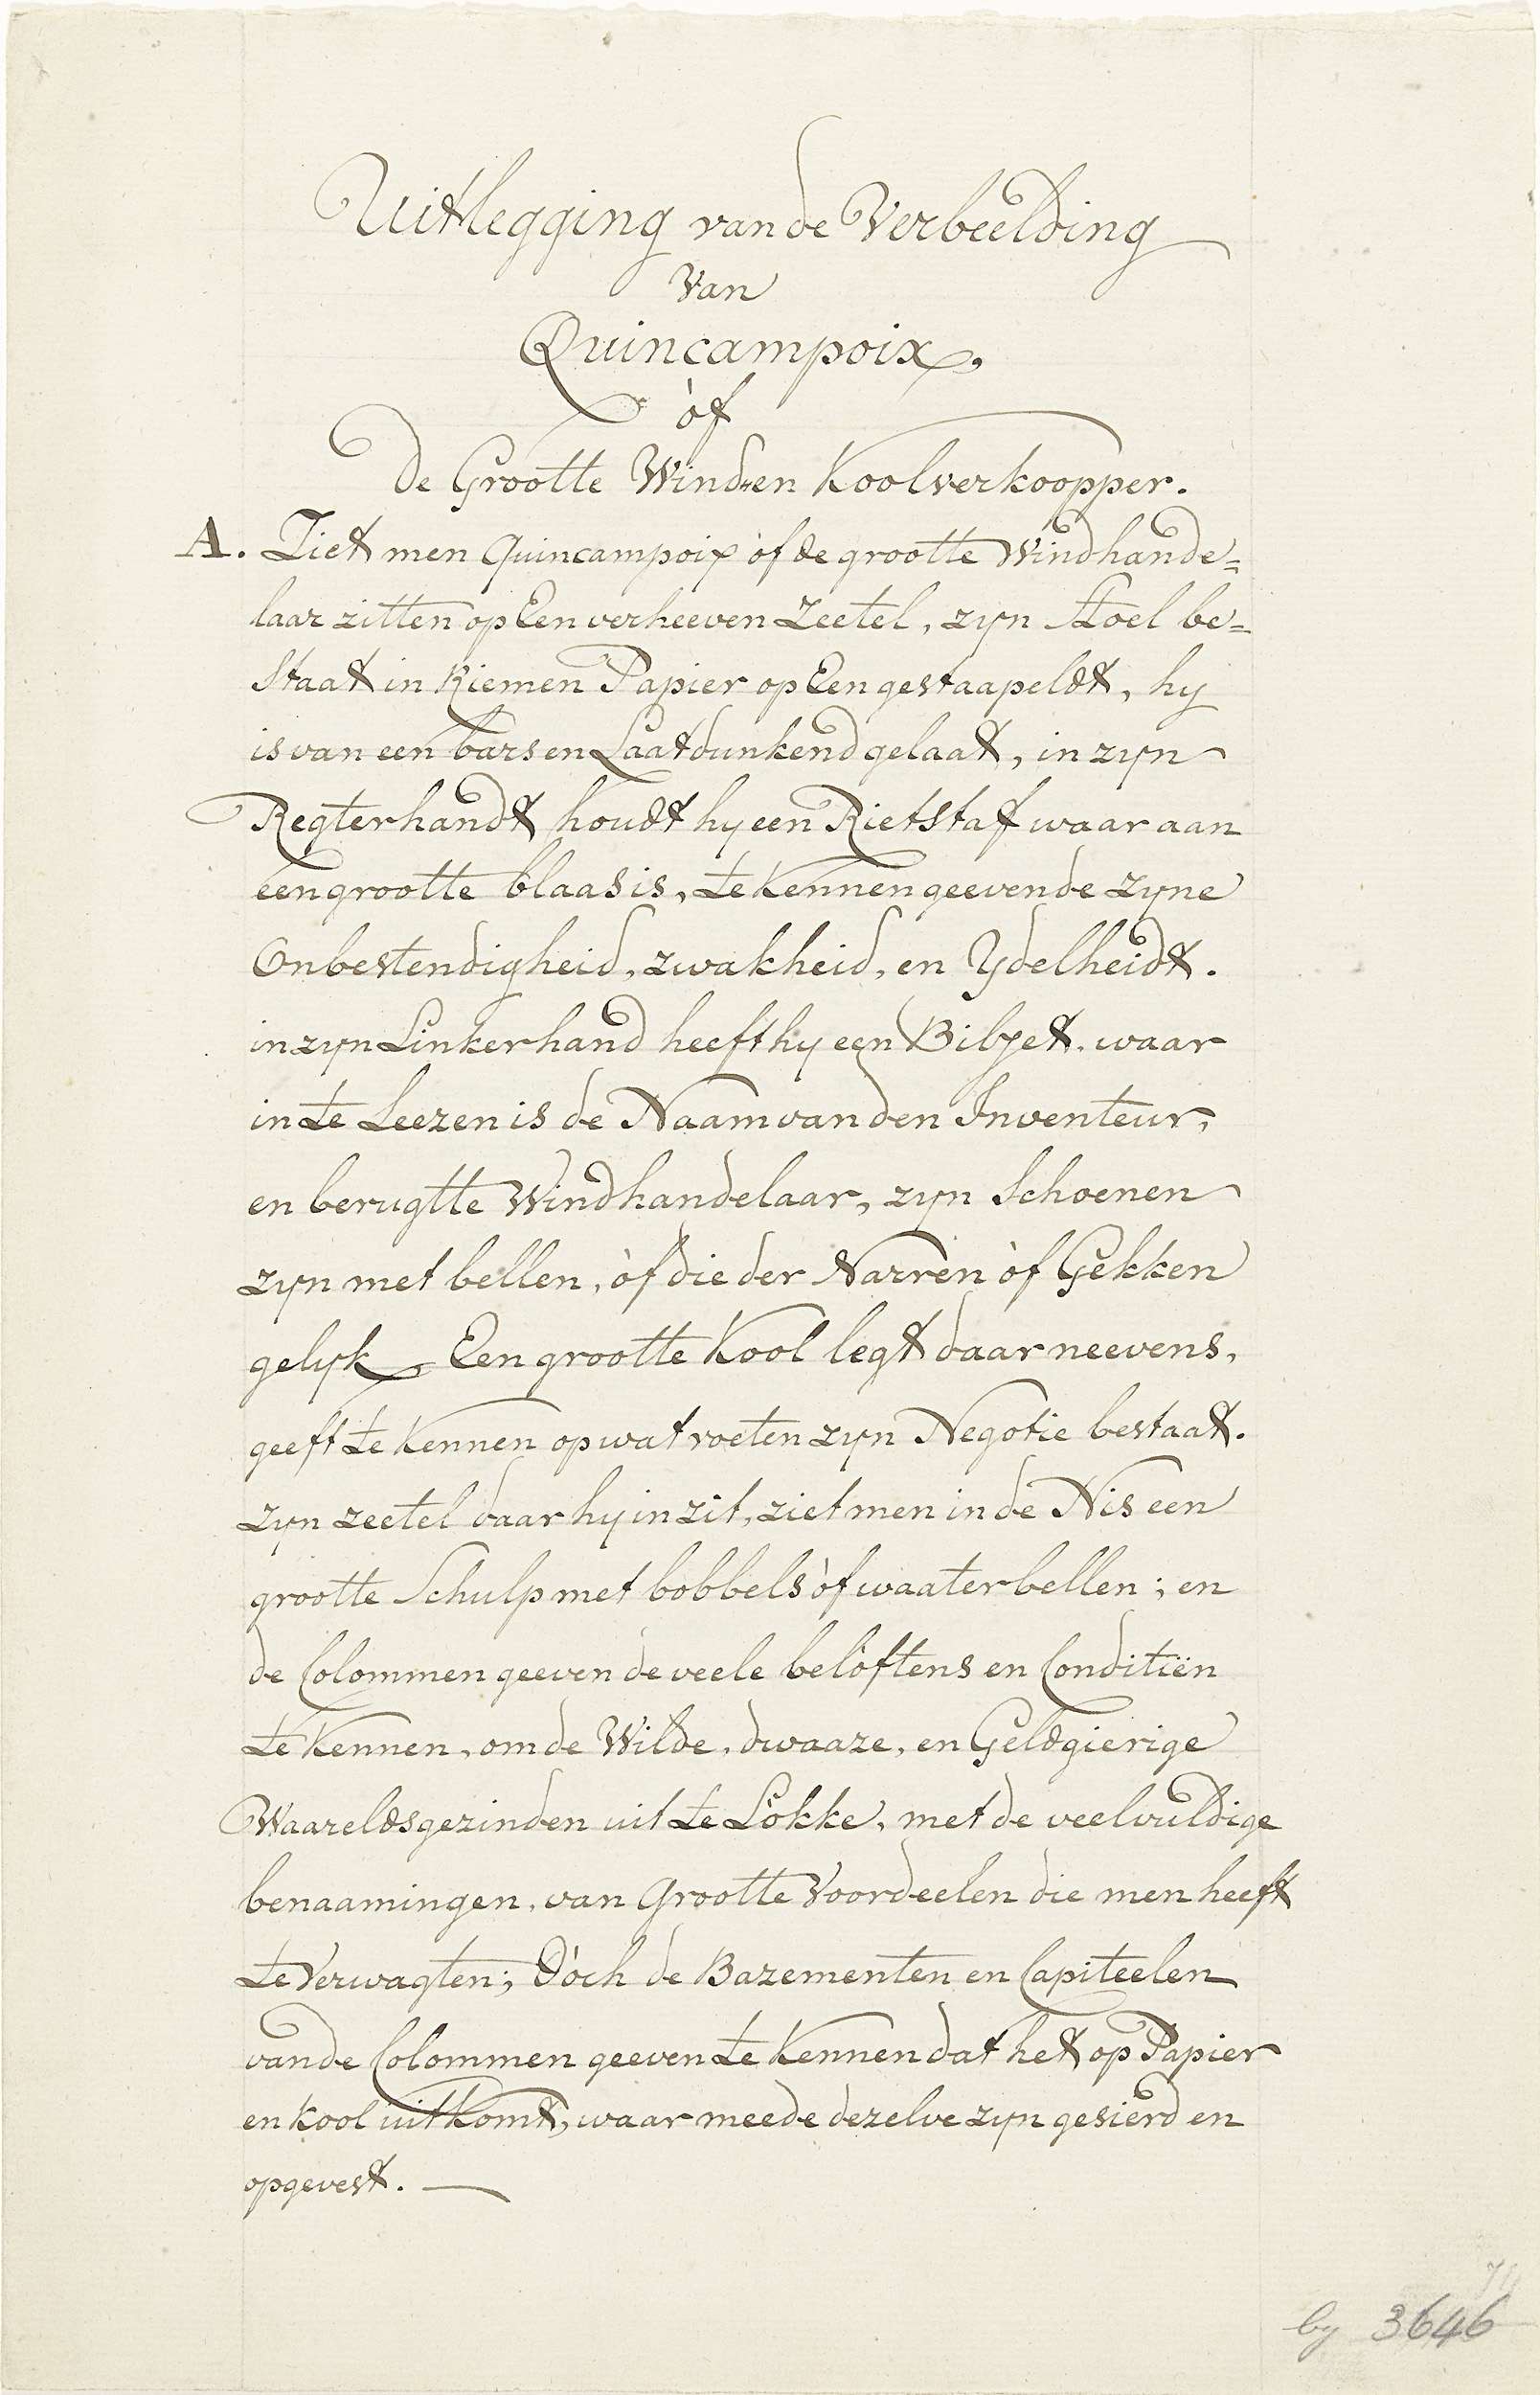 Uitlegging van de Verbeelding
Van
Quincampoix,
òf
de Grootte Wind-en Koolverkoopper.
A. Ziet men Quincampoix òf de grootte Windhande=
laar zitten op Een verheeven Zeetel, zyn Stoel be=
Staat in Riemen Papier op Een gestaapeldt, hy
is van een bars en Laatdunkend gelaat, in zyn
Regterhandt houdt hy een Rietstaf waar aan
een grootte blaas is, te Kennen geevende zyne
Onbestendigheid, zwakheid, en Ydelheidt.
in zyn Linkerhand heeft hy een Biljet. waar
in te Leezen is de Naam van den Inventeur,
en berugtte Windhandelaar, zyn Schoenen
zyn met bellen, òf die der Narren òf Gekken
gelyk, Een grootte Kool legt daar neevens,
geeft te Kennen op wat voeten zyn Negotie bestaat.
zyn zeetel daar hy in zit, ziet men in de Nis een
grootte Schulp met bobbels òf waaterbellen; en
de Colommen geeven de veele belòftens en Conditiën
te Kennen, om de Wilde, dwaaze, en Geldgierige
Waareldsgezinden uit te Lòkke, met de veelvuldige
benaamingen, van Grootte Voordeelen die men heeft
te Verwagten; Dòch de Bazementen en Capiteelen
van de Colommen geeven te Kennen dat het op Papier
en Kool uitkomt, waar meede dezelve zyn gesierd en
opgevest. —
by 3646